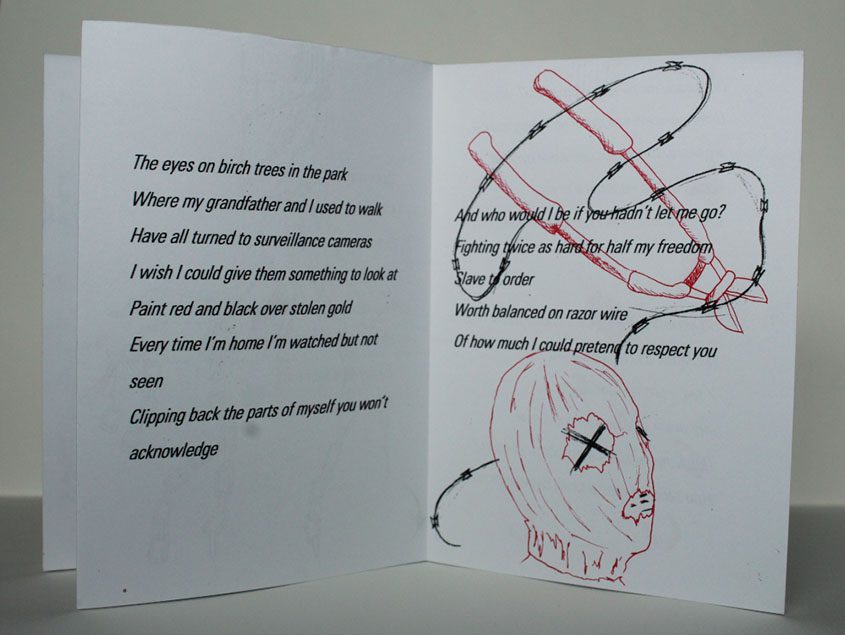 The eyes on birch trees in the park
Where my grandfather and I used to walk
Have all turned to surveillance cameras
I wish I could give them something to look at
Paint red and black over stolen gold
Every time I'm home I'm watched but not
seen
Clipping back the parts of myself you won't
acknowledge
And who would I be if you hadn't let me go?
Fighting twice as hard for half my freedom
Slave to order
Worth balanced on razor wire
Of how much I could pretend to respect you